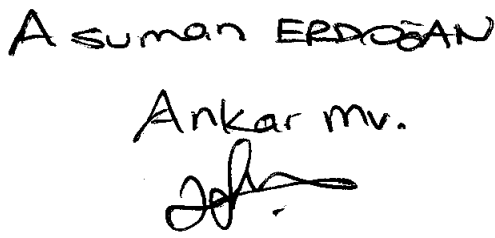 Asuman ERDOĞAN
Ankar mv.